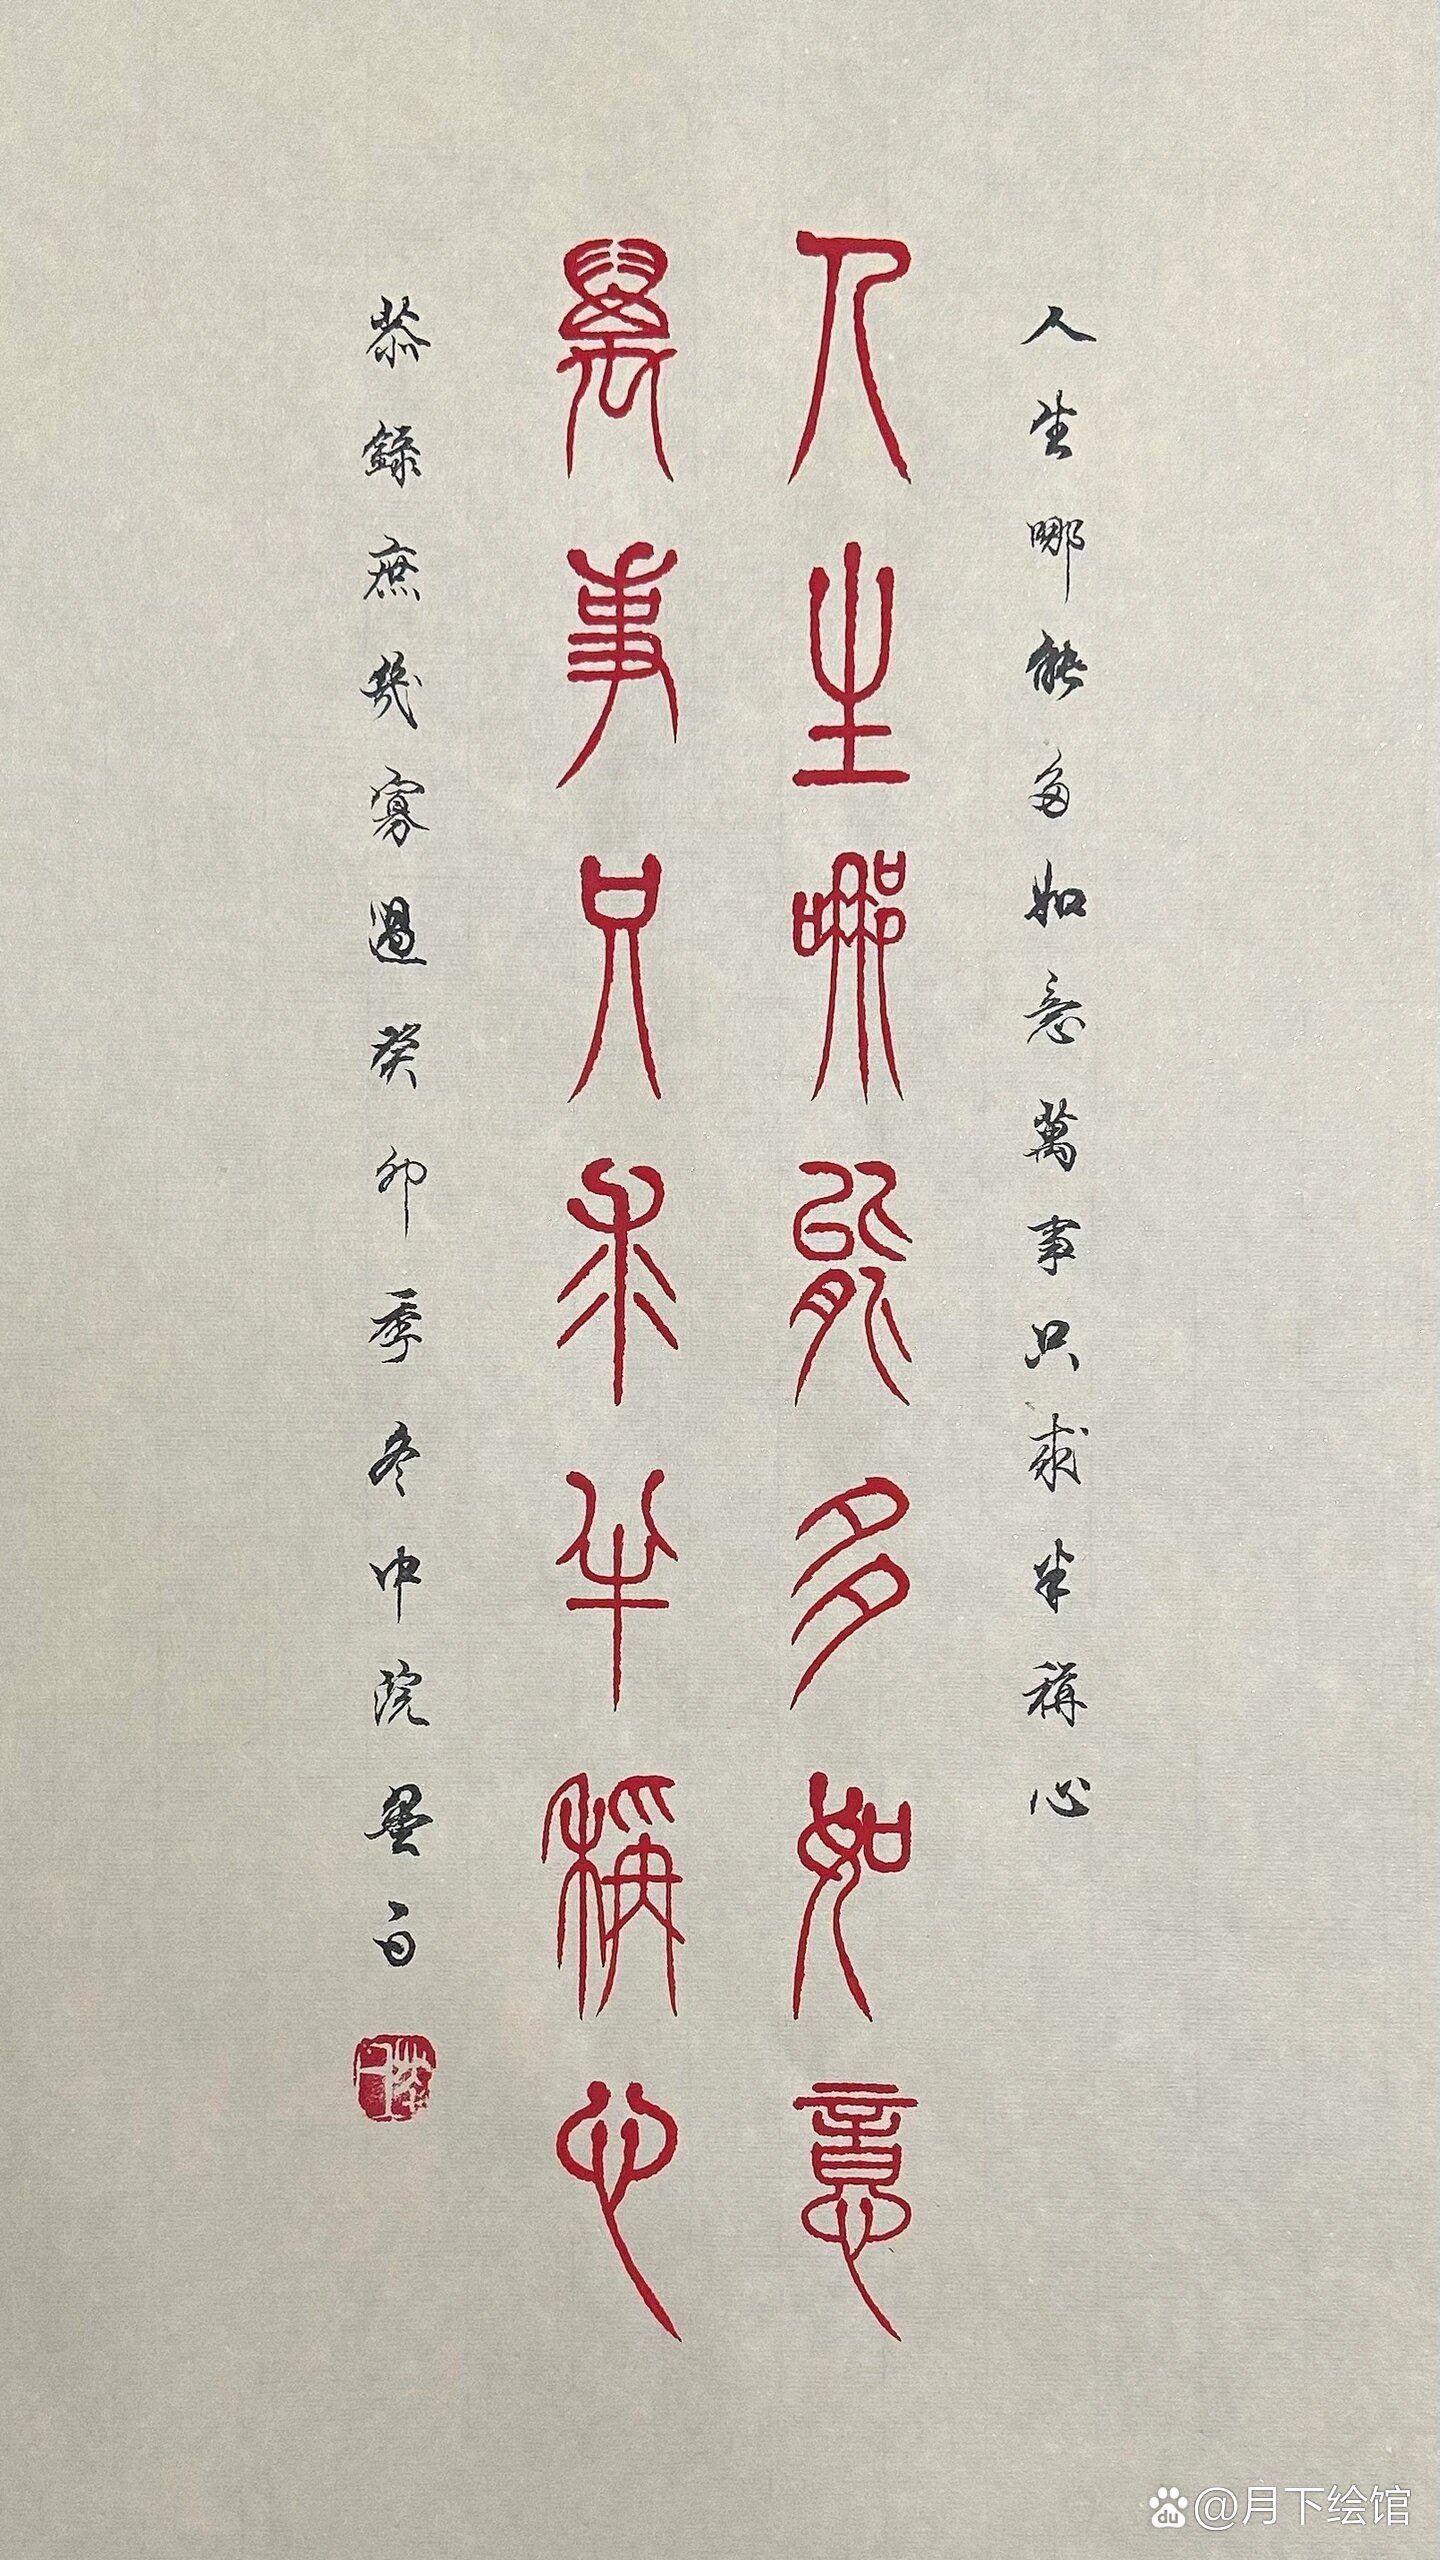 人生哪能多如意萬事只求半稱心
人生哪能多如意
萬事只求半稱心
恭錄庶幾寡過癸卯季冬中院墨白
@月下绘馆